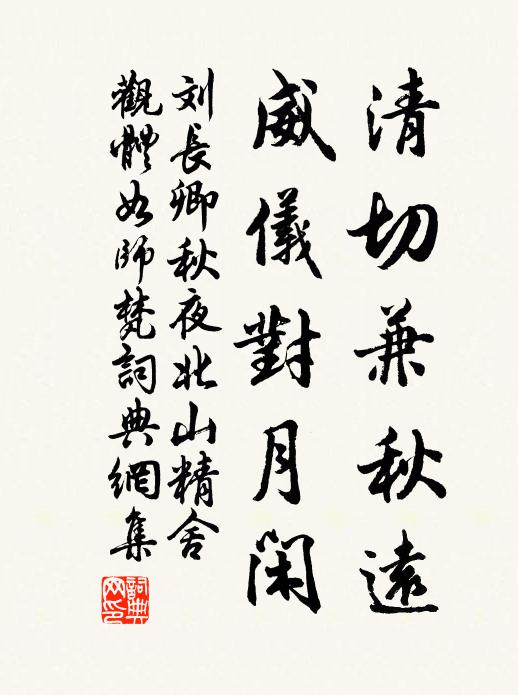 清切兼秋遠
威儀對月閑
刘長卿秋夜北山精舍
觀體如師梵詞典網集
詞典网印